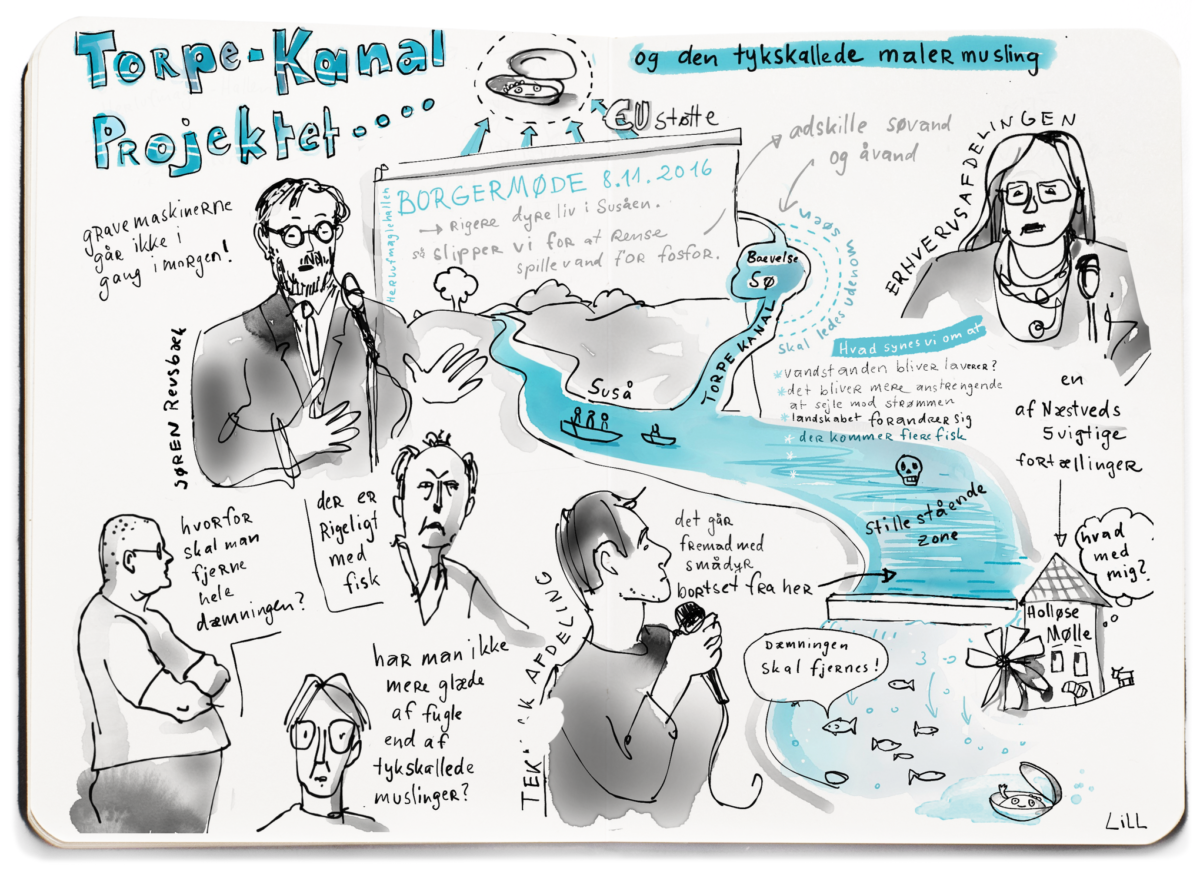 Torpe-Kanal
Projektet....
og den tykskallede malermusling
EU støtte
adskille søvand
og åvand
BORGERMØDE 8.11.2016
→ Rigere dyreliv i Susåen.
så slipper vi for at rense
spillevand for fosfor.
Herlufmaglehallen
gravemaskinerne
går ikke i
gang i morgen!
JØREN Reusbæk
Bavelse
SØ
skal ledes udenom
søen
TORPE KANAL
Suså
ERHVERVSAFDELINGEN
Hvad synes vi om at
*vandstanden bliver laverer?
*det bliver mere anstrengende
at sejle mod strømmen
*landskabet forandrer sig
* der kommer flere fisk
*
*
en
af Næstveds
5 vigtige
fortællinger
stillestående
zone
hvad
med
mig?
Holløse
Mølle
der er
Rigeligt
med
fisk
hvorfor
skal man
fjerne
hele
dæmningen?
har man ikke
mere glæde
af fugle
end af
tykskallede
muslinger?
det går
fremad med
smådyr
bortset fra her
AFDELING
Dæmningen
skal fjernes!
LiLL